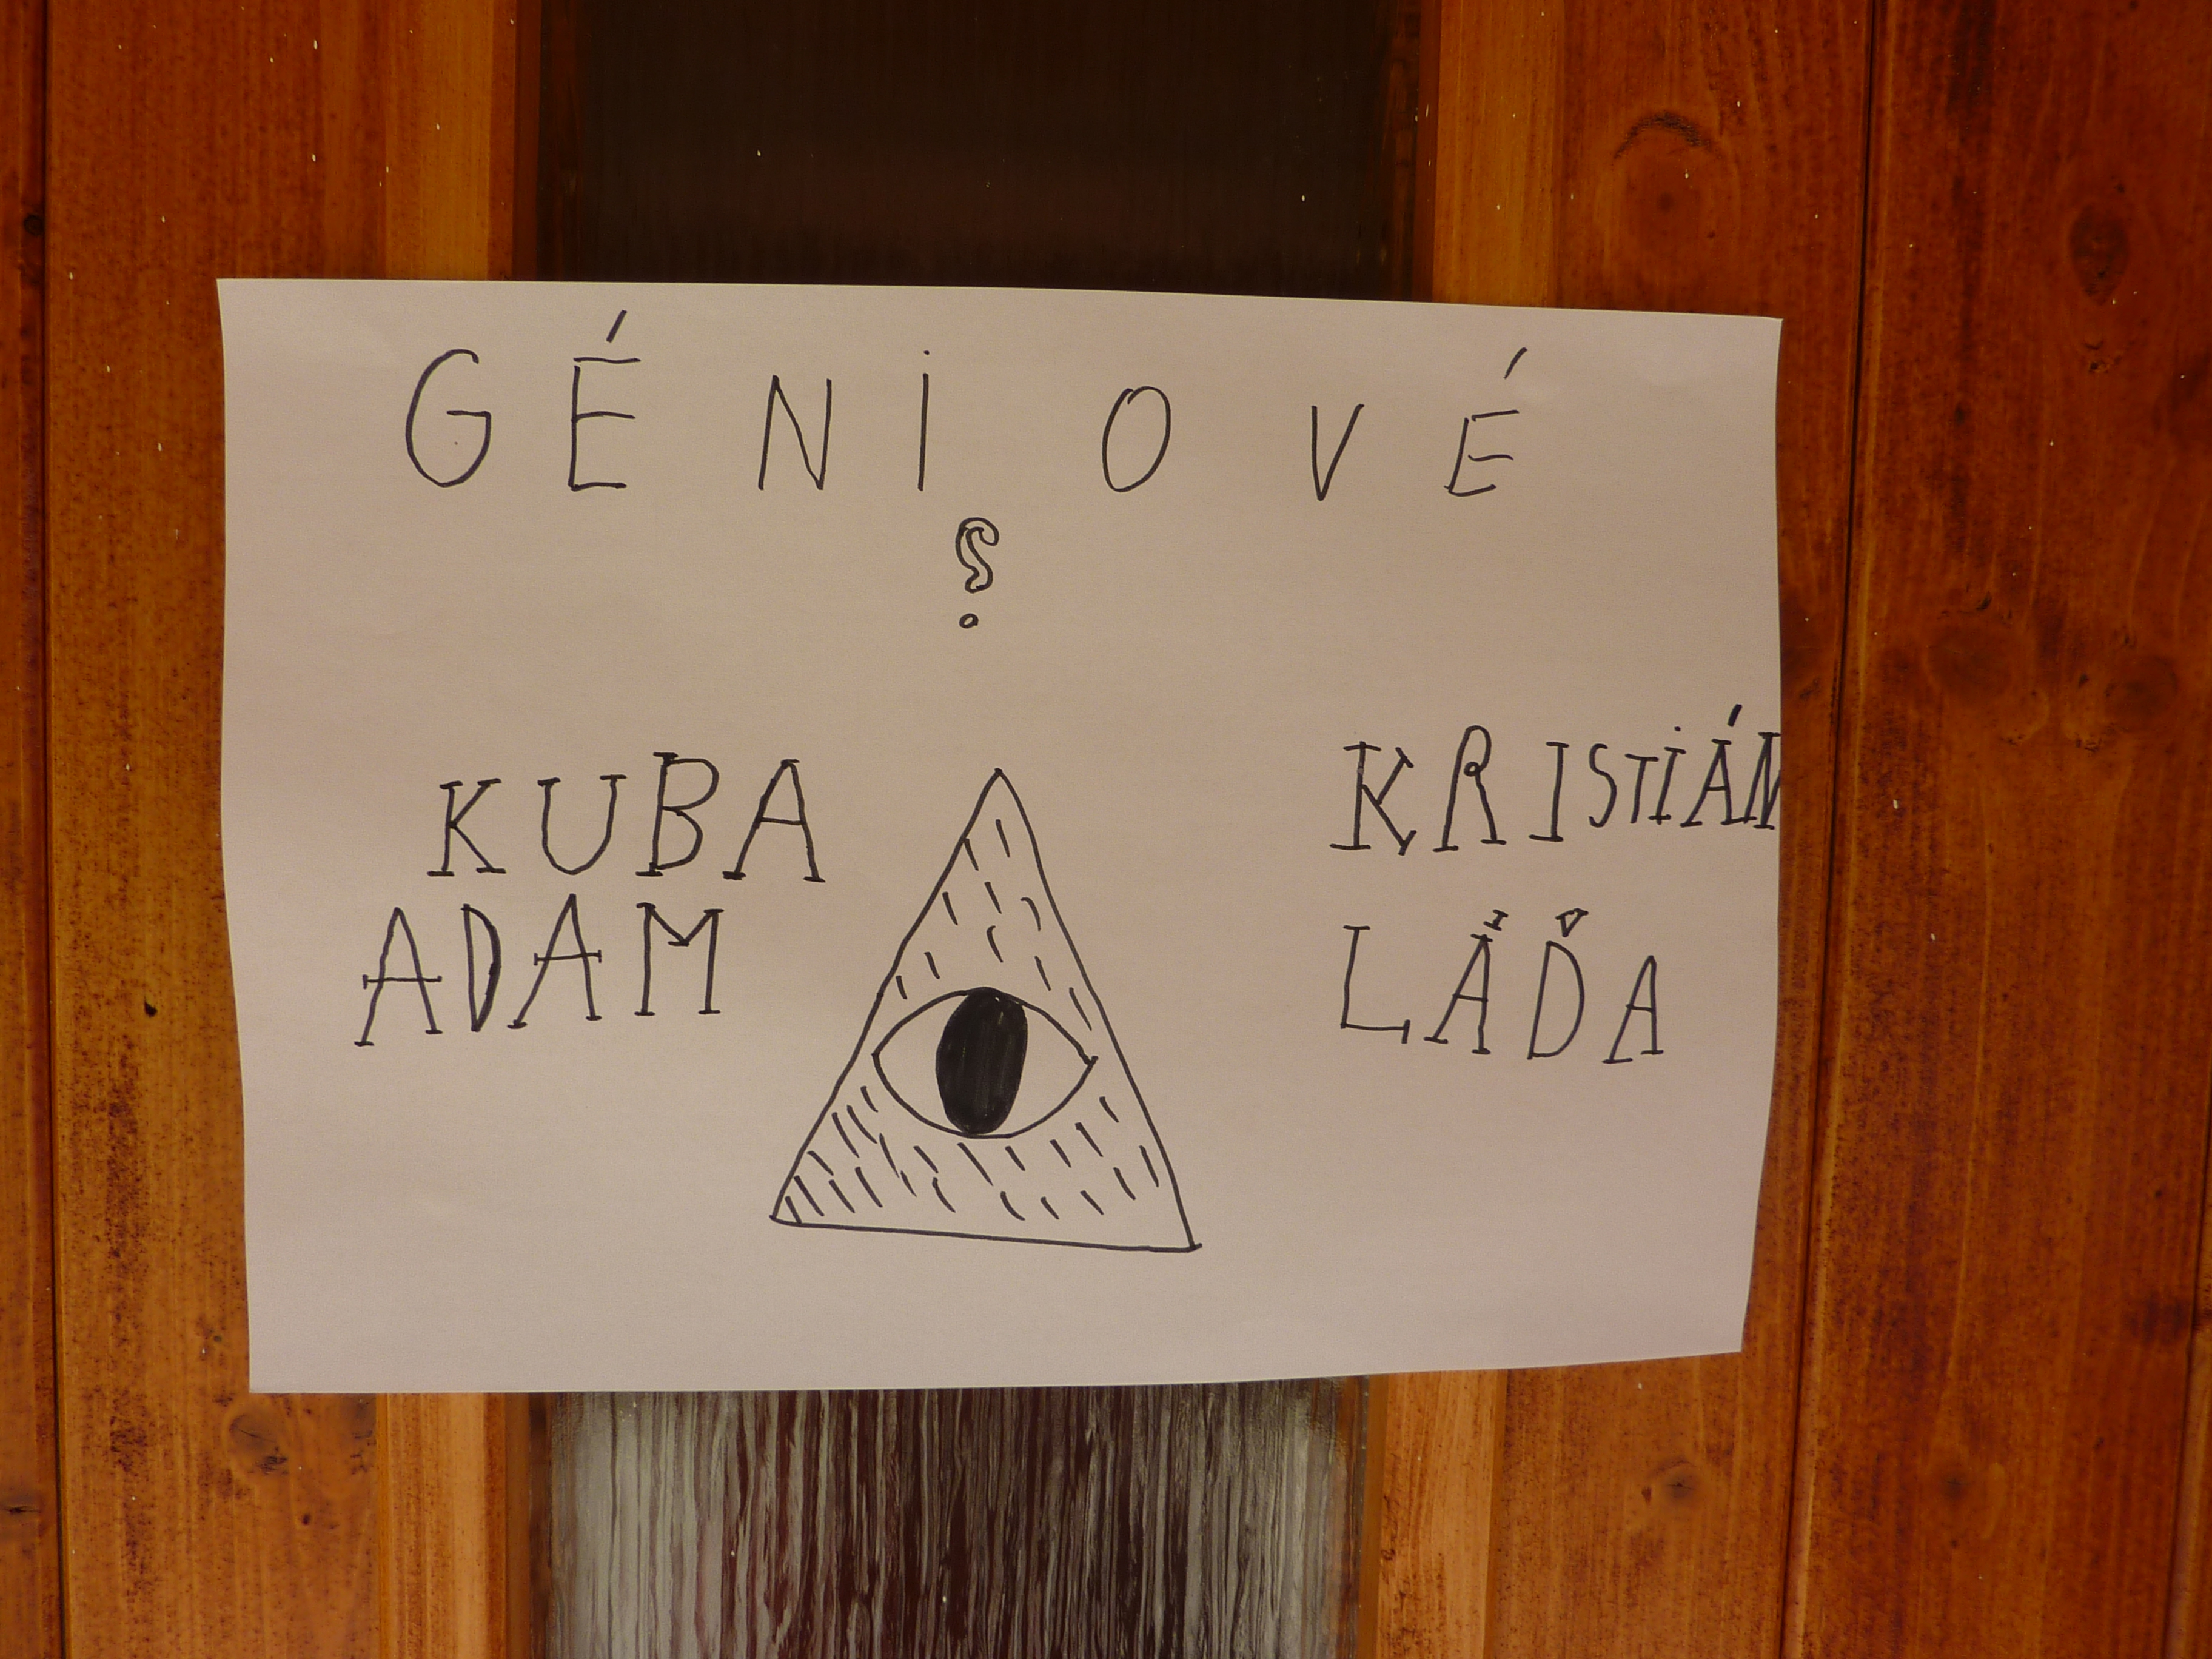 GÉNIOVÉ
?
KUBA
ADAM
KRISTIÁN
LÁĎA